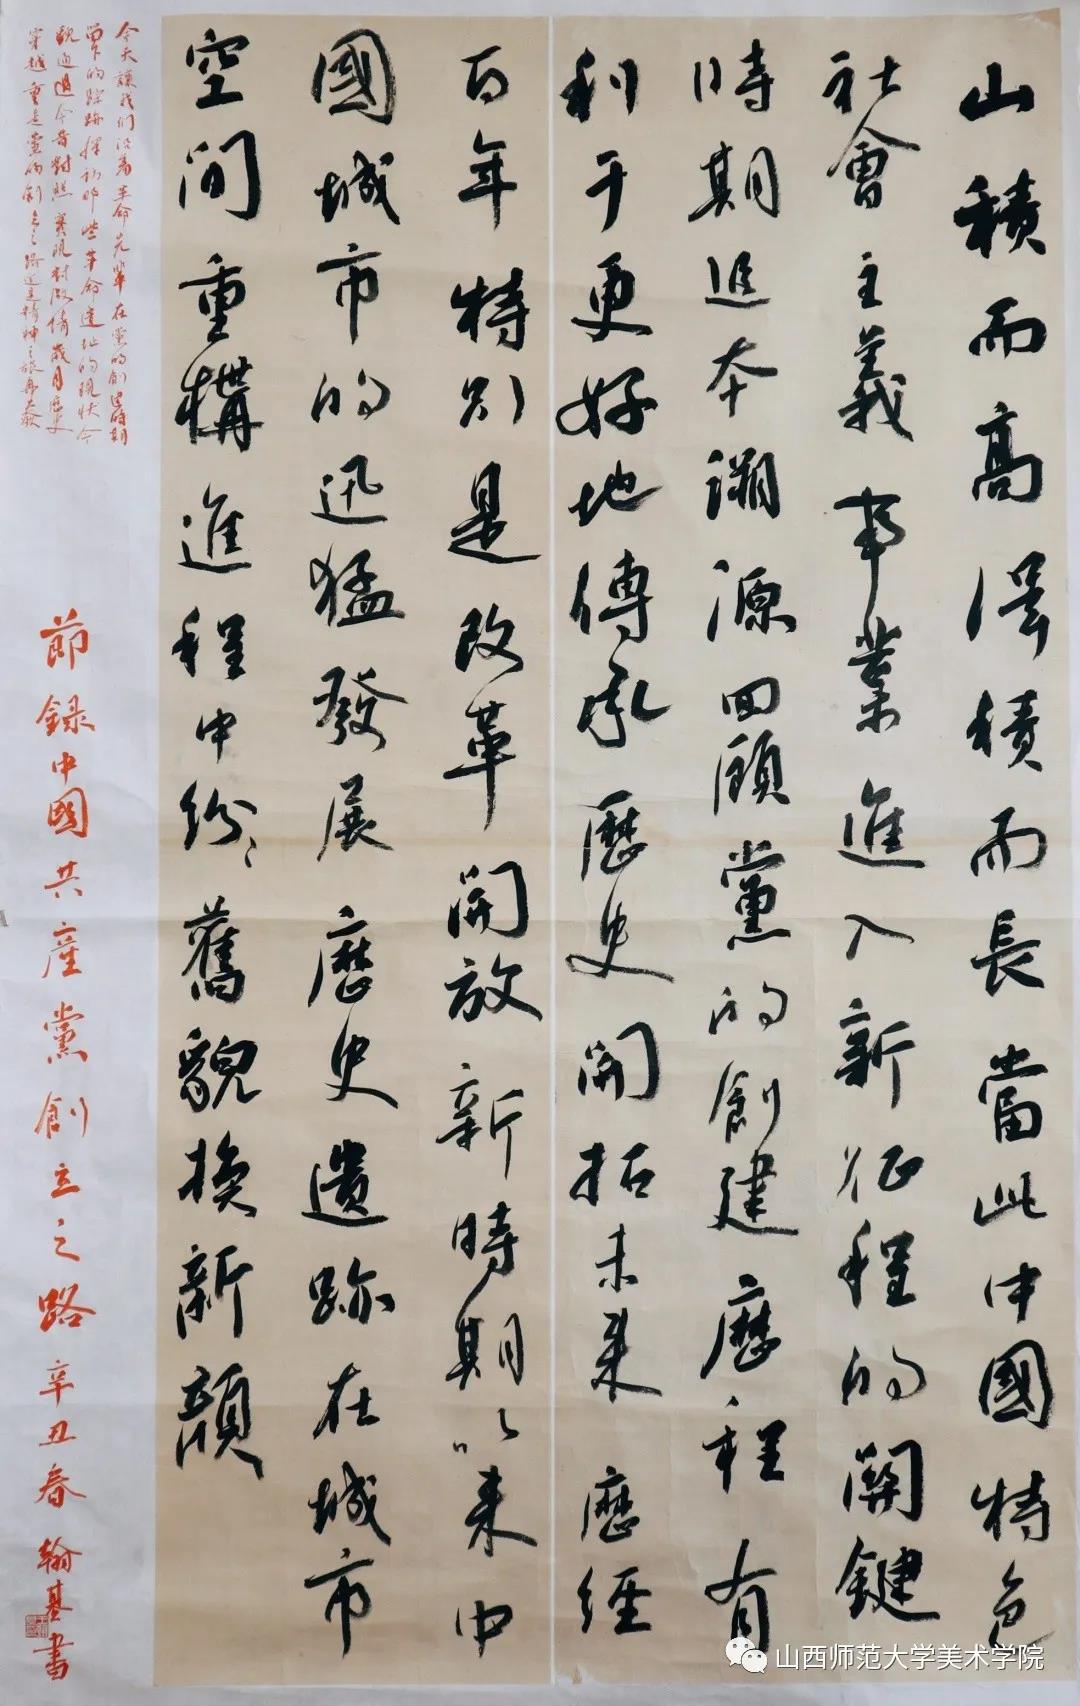 山積而高澤積而長當此中國特色
社會主義事業進入新征程的關鍵
時期追本溯源回顧黨的創建歷程有
利于更好地傳承歷史開拓未来歷經
百年特别是改革開放新時期以来中
國城市的迅猛發展歷史遺跡在城市
空間重構進程中紛紛舊貌換新顔
今天讓我们沿着革命先輩在黨的創建時期
留下的踪跡探訪那些革命遺址的現狀
通過今昔對照
歲月歷史
穿越重走黨的創立之路
節録中國共産黨創立之路辛丑春翰基書
山西师范大学美术学院